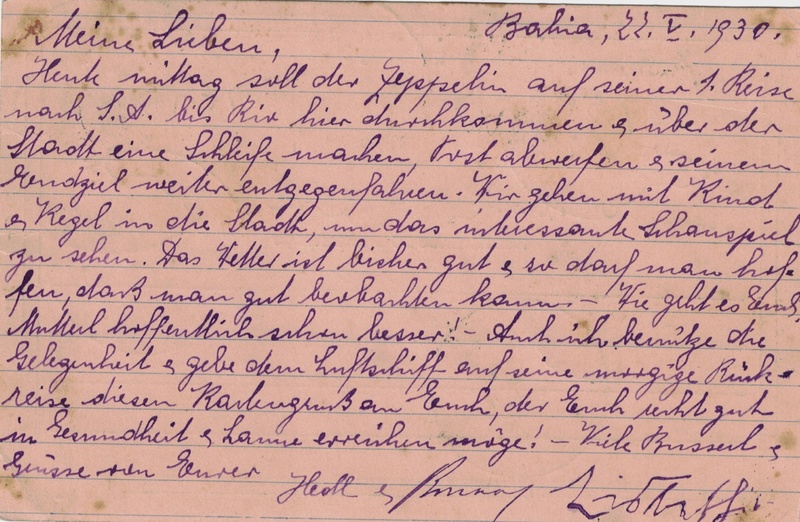 Bahia, 22. V. 1930.
Meine Lieben,
Heute mittag soll der Zeppelin auf seiner 1. Reise
nach S.A. bis Rio hier durchkommen & über der
Stadt eine Schleife machen, Post abwerfen & seinem
Endziel weiter entgegenfahren. Wir gehen mit Kind
& Kegel in die Stadt, um das interessante Schauspiel
zu sehen. Das Wetter ist bisher gut & so darf man hof-
fen, daß man gut beobachten kann. – Wie geht es Euch,
Mutterl hoffentlich schon besser! – Auch ich benütze die
Gelegenheit & gebe dem Luftschiff auf seine morgige Rück-
reise diesen Kartengruß an Euch, der Euch recht gut
in Gesundheit & Laune erreichen möge! – Viele Busserl &
Grüsse von Eurer
Hedl &